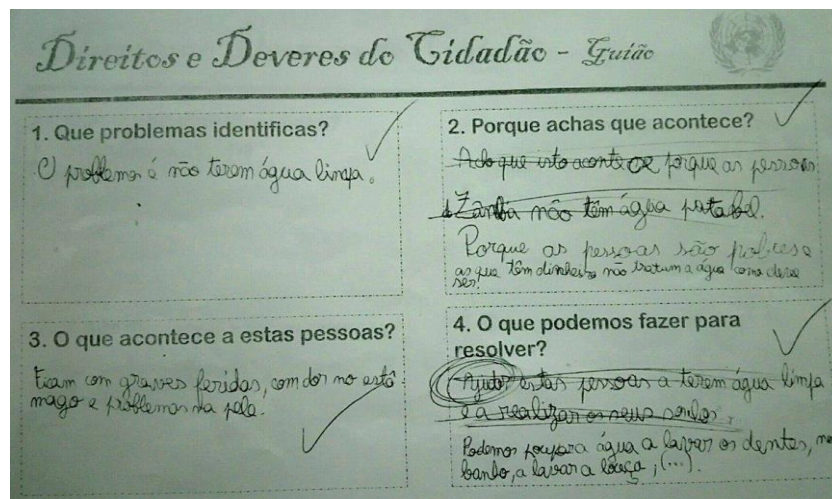 Direitos e Deveres do Cidadão - Guião
1. Que problemas identificas?
O problema é não terem água limpa.
2. Porque achas que acontece?
Acho que isto acontece porque as pessoas
da Zambia não têm água potabel.
Porque as pessoas são pobres e
as que têm dinheiro não tratam a água como deve
ser.
3. O que acontece a estas pessoas?
Ficam com graves feridas, com dor no estô-
mago e problemas na pele.
4. O que podemos fazer para
resolver?
Ajudar estas pessoas a terem água limpa
e a realizar os seus sonhos.
Podemos poupar a água a lavar os dentes, no
banho, a lavar a louça, (...).